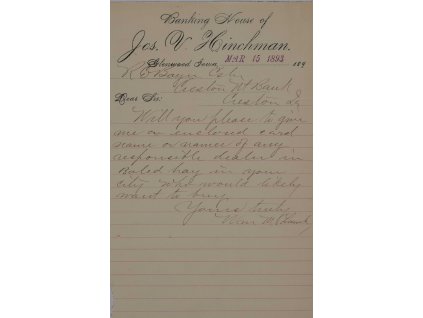 Banking House of
Jos. V. Hinchman.
Glenwood, Iowa, MAR 15 1893 189
R E Boyer Csh.
Creston Nt Bank
Dear Sir: Creston Ia
Will you please to give
me on enclosed card
name or names of any
responsible dealer in
Baled hay in your
city who would likely
want to buy.
Yours truly,